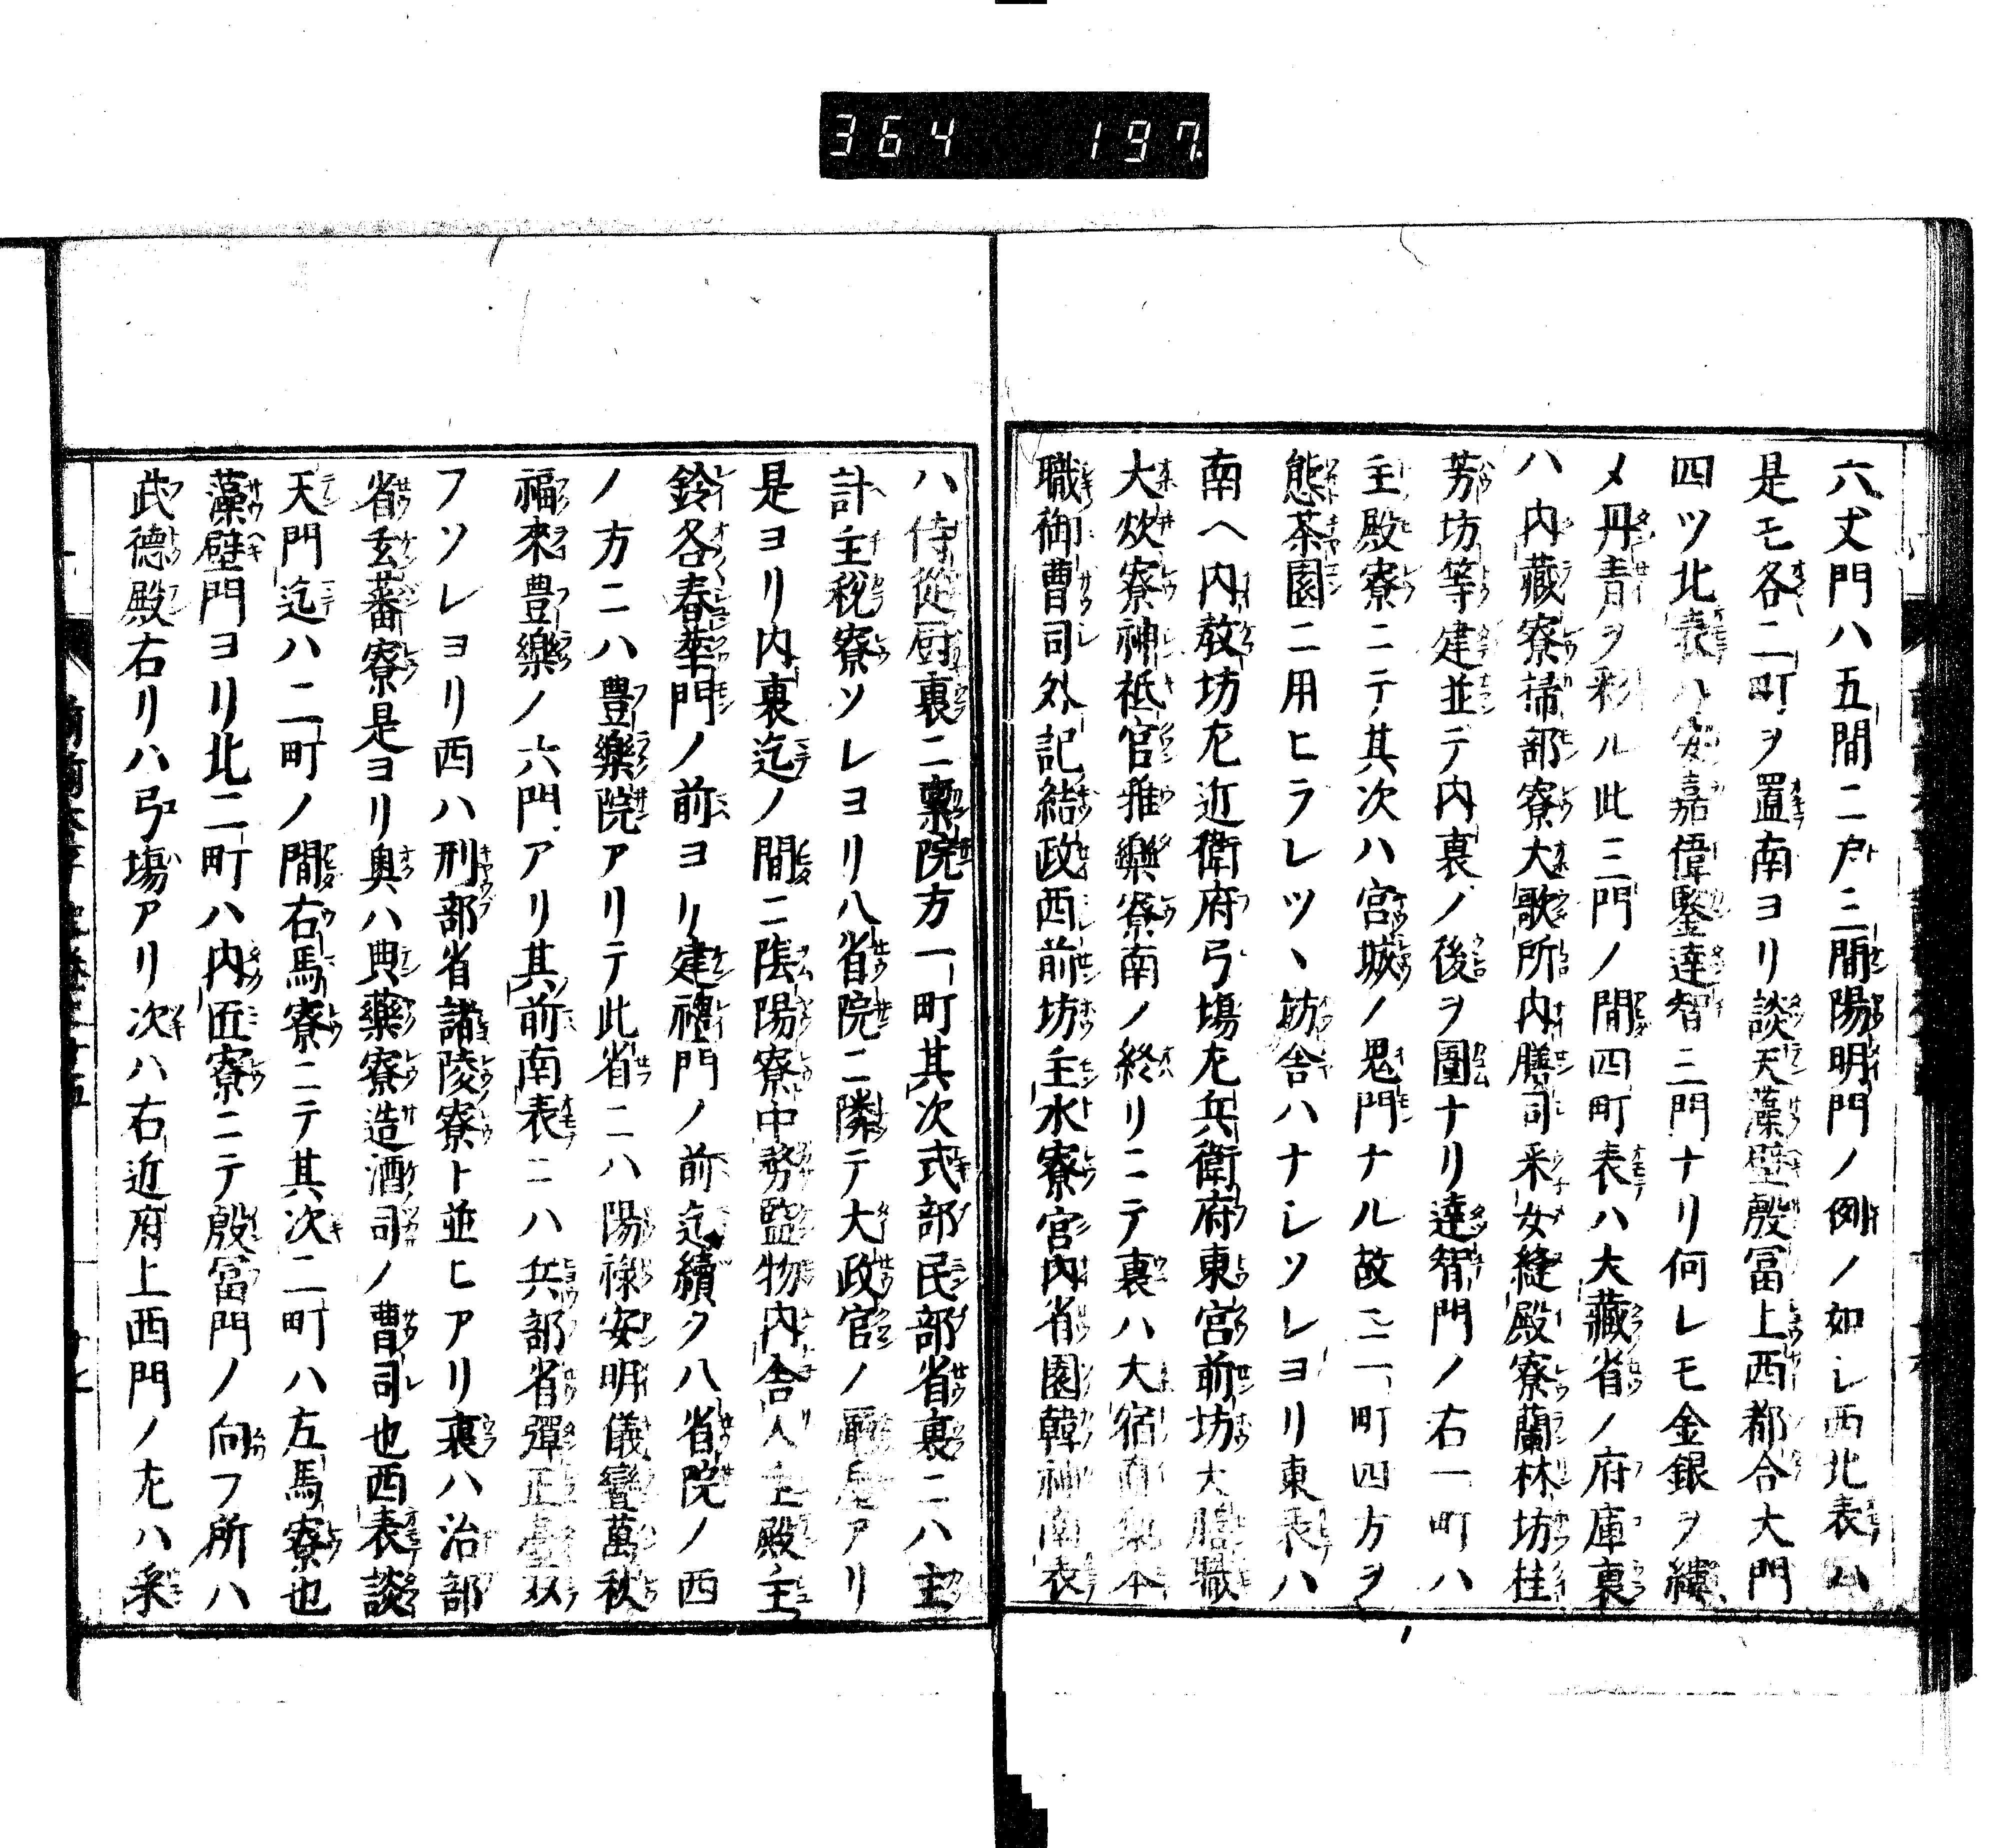 364 197
六丈門ハ五間ニ戸三間陽明門ノ例ノ如シ西北表ハ
是モ各二町ヲ置南ヨリ談天藻壁殷冨上西都合大門
四ツ北表ハ安嘉偉鑒達智三門ナリ何レモ金銀ヲ鏤
メ丹青ヲ彩ル此三門ノ間四町表ハ大藏省ノ府庫裏
ハ内藏寮掃部寮大歌所内膳司釆女縫殿寮蘭林坊桂
芳坊等建並テ内裏ノ後ヲ圍ナリ達智門ノ右一町ハ
主殿寮ニテ其次ハ宮城ノ鬼門ナル故ニ一町四方ヲ
態茶園ニ用ヒラレツヽ 舎ハナシソレヨリ東表ハ
南ヘ内教坊左近衛府弓場左兵衛府東宮前坊大膳職
大炊寮神祇官雅樂寮南ノ終リニテ裏ハ大宿直 本
職御曹司外記結政西前坊主水寮宮内省園韓神南表
ハ侍從厨裏ニ稟院方一町其次式部民部省裏ニハ主
計主税寮ソレヨリ八省院ニ隣テ大政官ノ廳屋アリ
是ヨリ内裏迄ノ間ニ陰陽寮中務監物内舎人主殿主
鈴各春華門ノ前ヨリ建禮門ノ前迄續ク八省院ノ西
ノ方ニハ豊樂院アリテ此省ニハ陽禄安明儀鸞萬秋
福來豊樂ノ六門アリ其前南表ニハ兵部省彈正臺双
フソレヨリ西ハ刑部省諸陵寮ト並ヒアリ裏ハ治部
省玄蕃寮是ヨリ奥ハ典藥寮造酒司ノ曹司也西表談
天門迄ハ二町ノ間右馬寮ニテ其次二町ハ左馬寮也
藻壁門ヨリ北二町ハ内匠寮ニテ殷冨門ノ向フ所ハ
武德殿右リハ弓場アリ次ハ右近府上西門ノ左ハ釆